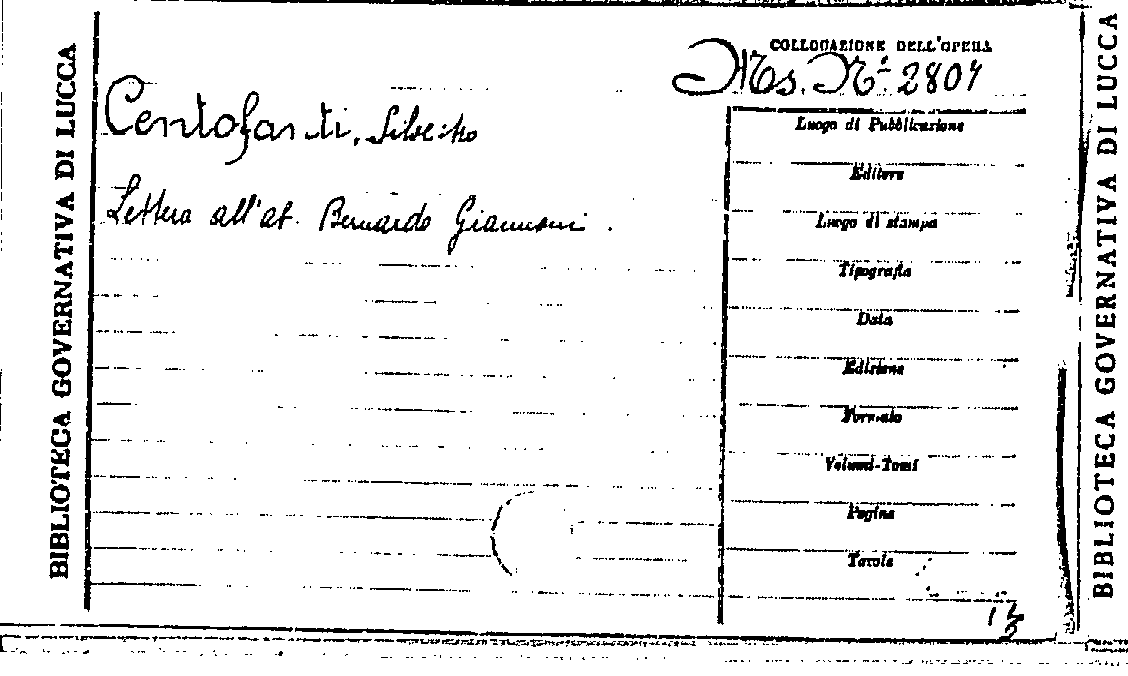 BIBLIOTECA GOVERNATIVA DI LUCCA
COLLOCAZIONE DELL'OPERA
Ms. N° 2807
Centofanti, Silvestro
Lettera all'ab. Bernardo Giannoni.
Luogo di Pubblicazione
Editore
Luogo di stampa
Tipografia
Data
Edizione
Formato
Volumi-Tomi
Pagine
Tavole
BIBLIOTECA GOVERNATIVA DI LUCCA